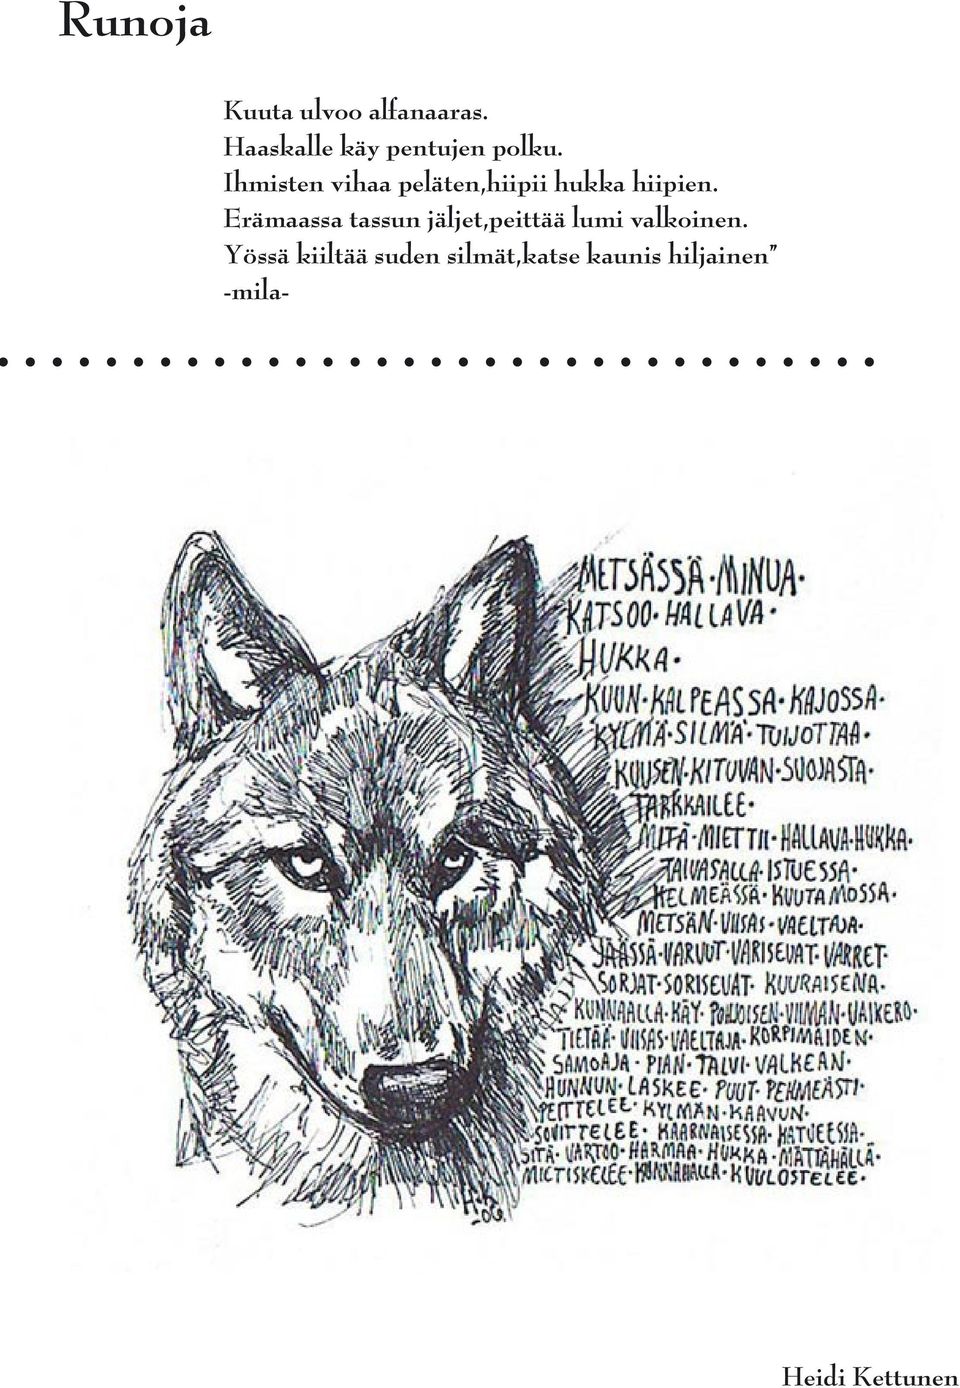 Runoja
Kuuta ulvoo alfanaaras.
Haaskalle käy pentujen polku.
Ihmisten vihaa peläten,hiipii hukka hiipien.
Erämaassa tassun jäljet,peittää lumi valkoinen.
Yössä kiiltää suden silmät,katse kaunis hiljainen"
-mila-
METSÄSSÄ·MINUA·
KATSOO·HALLAVA·
HUKKA·
KUUN·KALPEASSA·KAJOSSA·
KYLMÄ·SILMÄ·TUIJOTTAA·
KUUSEN·KITUVAN·SUOJASTA·
TARKKAILEE·
MITÄ·MIETTII·HALLAVA·HUKKA·
TAIVASALLA·ISTUESSA·
KELMEÄSSÄ·KUUTAMOSSA·
METSÄN·VIISAS·VAELTAJA·
JÄÄSSÄ·VARVUT·VARISEVAT·VARRET·
SORJAT·SORISEVAT·KUURAISENA·
KUNNAALLA·KÄY·POHJOISEN·VIIMAN·VAIKERO·
TIETÄÄ·VIISAS·VAELTAJA·KORPIMAIDEN·
SAMOAJA·PIAN·TALVI·VALKEAN·
HUNNUN·LASKEE·PUUT·PEHMEÄSTI·
PEITTELEE·KYLMÄN·KAAVUN·
SOVITTELEE·KAARNAISESSA·KATVEESSA·
SITÄ·VARTOO·HARMAA·HUKKA·MÄTTÄHÄLLÄ·
MIETISKELEE·KUNNAHALLA·KUULOSTELEE·
H.K
-06.
Heidi Kettunen